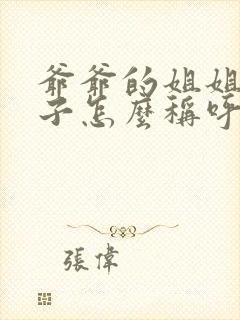 爺爺的姐姐
子怎麼稱呼
張偉